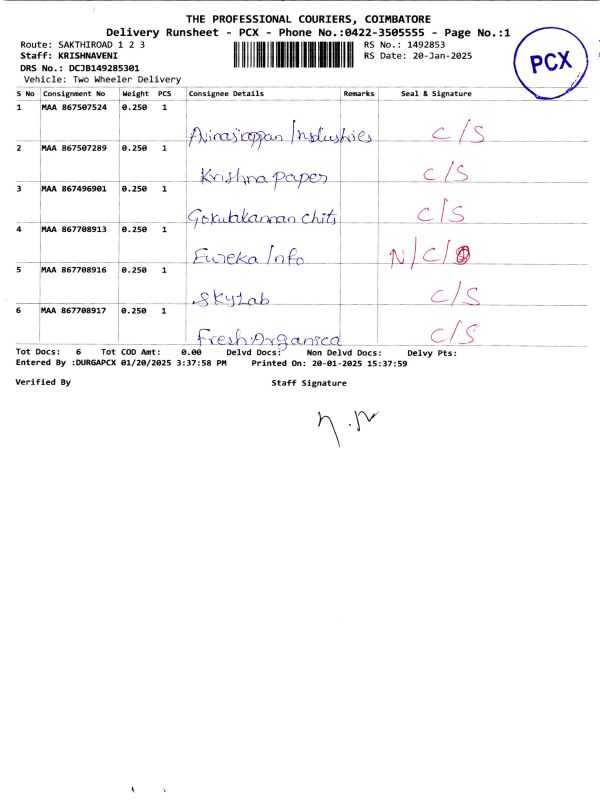 THE PROFESSIONAL COURIERS, COIMBATORE
Delivery Runsheet - PCX - Phone No.:0422-3505555 - Page No.:1
Route: SAKTHIROAD 1 2 3 RS No.: 1492853
Staff: KRISHNAVENI RS Date: 20-Jan-2025
DRS No.: DCJB149285301
Vehicle: Two Wheeler Delivery
PCX
S No Consignment No Weight PCS Consignee Details Remarks Seal & Signature
1 MAA 867507524 0.250 1
Industries C/S
2 MAA 867507289 0.250 1
Krishna paper C/S
3 MAA 867496901 0.250 1
Gokulakannan chits C/S
4 MAA 867708913 0.250 1
Eureka Info N/C/
5 MAA 867708916 0.250 1
SkyLab C/S
6 MAA 867708917 0.250 1
Fresh Organica C/S
Tot Docs: 6 Tot COD Amt: 0.00 Delvd Docs: Non Delvd Docs: Delvy Pts:
Entered By :DURGAPCX 01/20/2025 3:37:58 PM Printed On: 20-01-2025 15:37:59
Verified By Staff Signature